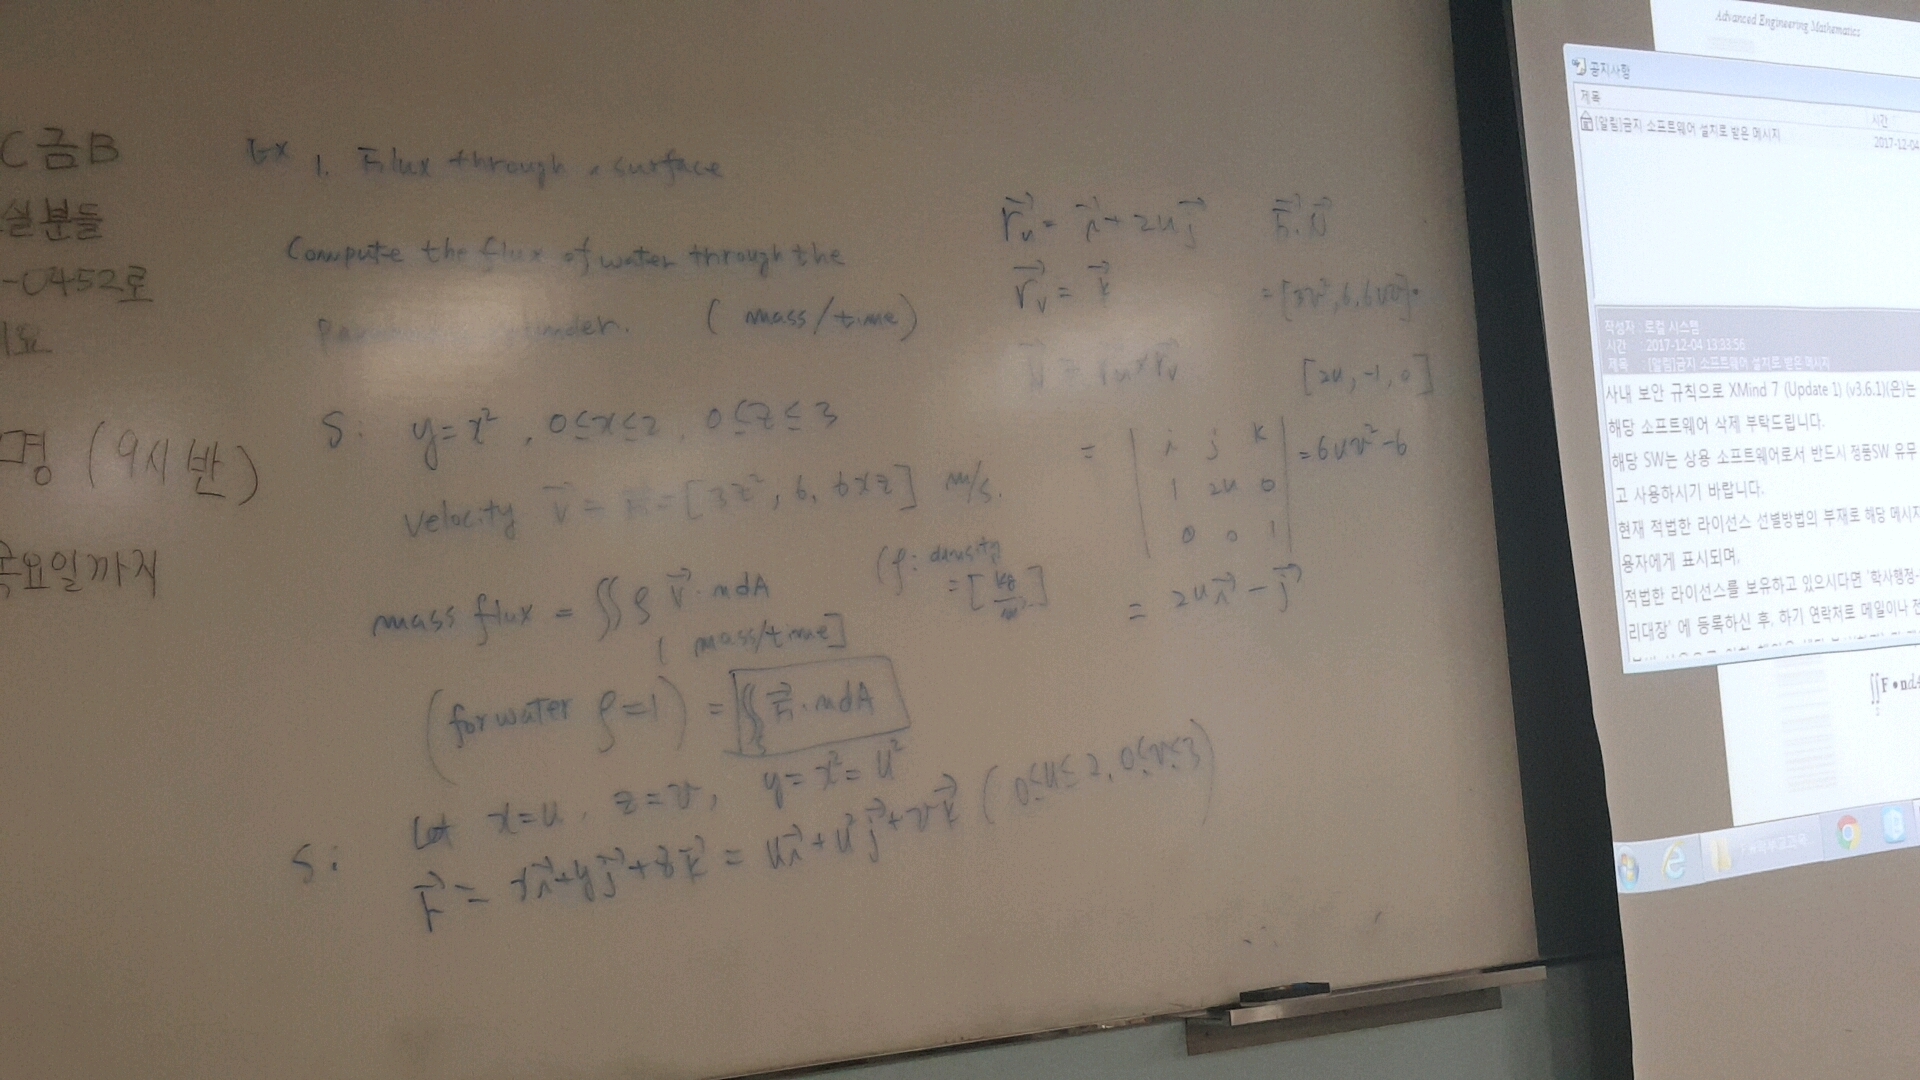 C금B
실분들
-0452로
명 (9시 반)
목요일까지
Ex 1. Flux through a surface
Compute the flux of water through the
(mass/time)
S: y=x², 0≤x≤2, 0≤z≤3
velocity v⃗ = F⃗ = [3z², 6, 6xz] m/s.
mass flux = ∬ ρ v⃗·ndA
(ρ: density
[mass/time]
(for water ρ=1) = ∬ F⃗·ndA
Let x=u, z=v, y=x²=u²
S: r⃗ = xi⃗+yj⃗+zk⃗ = ui⃗+u²j⃗+vk⃗ (0≤u≤2, 0≤v≤3)
r⃗u = i⃗+2uj⃗
r⃗v = k⃗
N⃗ = r⃗u×r⃗v
= | i j k |
1 2u 0
0 0 1
= 2ui⃗-j⃗
F⃗·N⃗
= [3v²,6,6uv]·
[2u,-1,0]
=6uv²-6
Advanced Engineering Mathematics
공지사항
제목
시간
[알림]금지 소프트웨어 설치로 받은 메시지
2017-12-04
작성자 : 로컬 시스템
시간 : 2017-12-04 13:33:56
제목 : [알림]금지 소프트웨어 설치로 받은 메시지
사내 보안 규칙으로 XMind 7 (Update 1) (v3.6.1)(은)는
해당 소프트웨어 삭제 부탁드립니다.
해당 SW는 상용 소프트웨어로서 반드시 정품SW 유무
고 사용하시기 바랍니다.
현재 적법한 라이선스 선별방법의 부재로 해당 메시지
용자에게 표시되며,
적법한 라이선스를 보유하고 있으시다면 '학사행정-
리대장' 에 등록하신 후, 하기 연락처로 메일이나 전
∬F•ndA